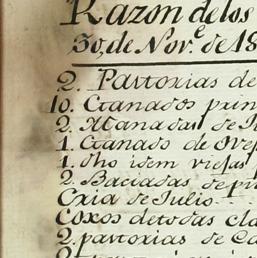 Razon de los
30, de Nov.e de 18
2. Partorias de
10. Ganados prin
2. Manadas de
1. Ganado de Ovej
1. Dho idem viejas
2. de
Cria de Julio
Coxos de todas cla
2. partorias de Ca
2.